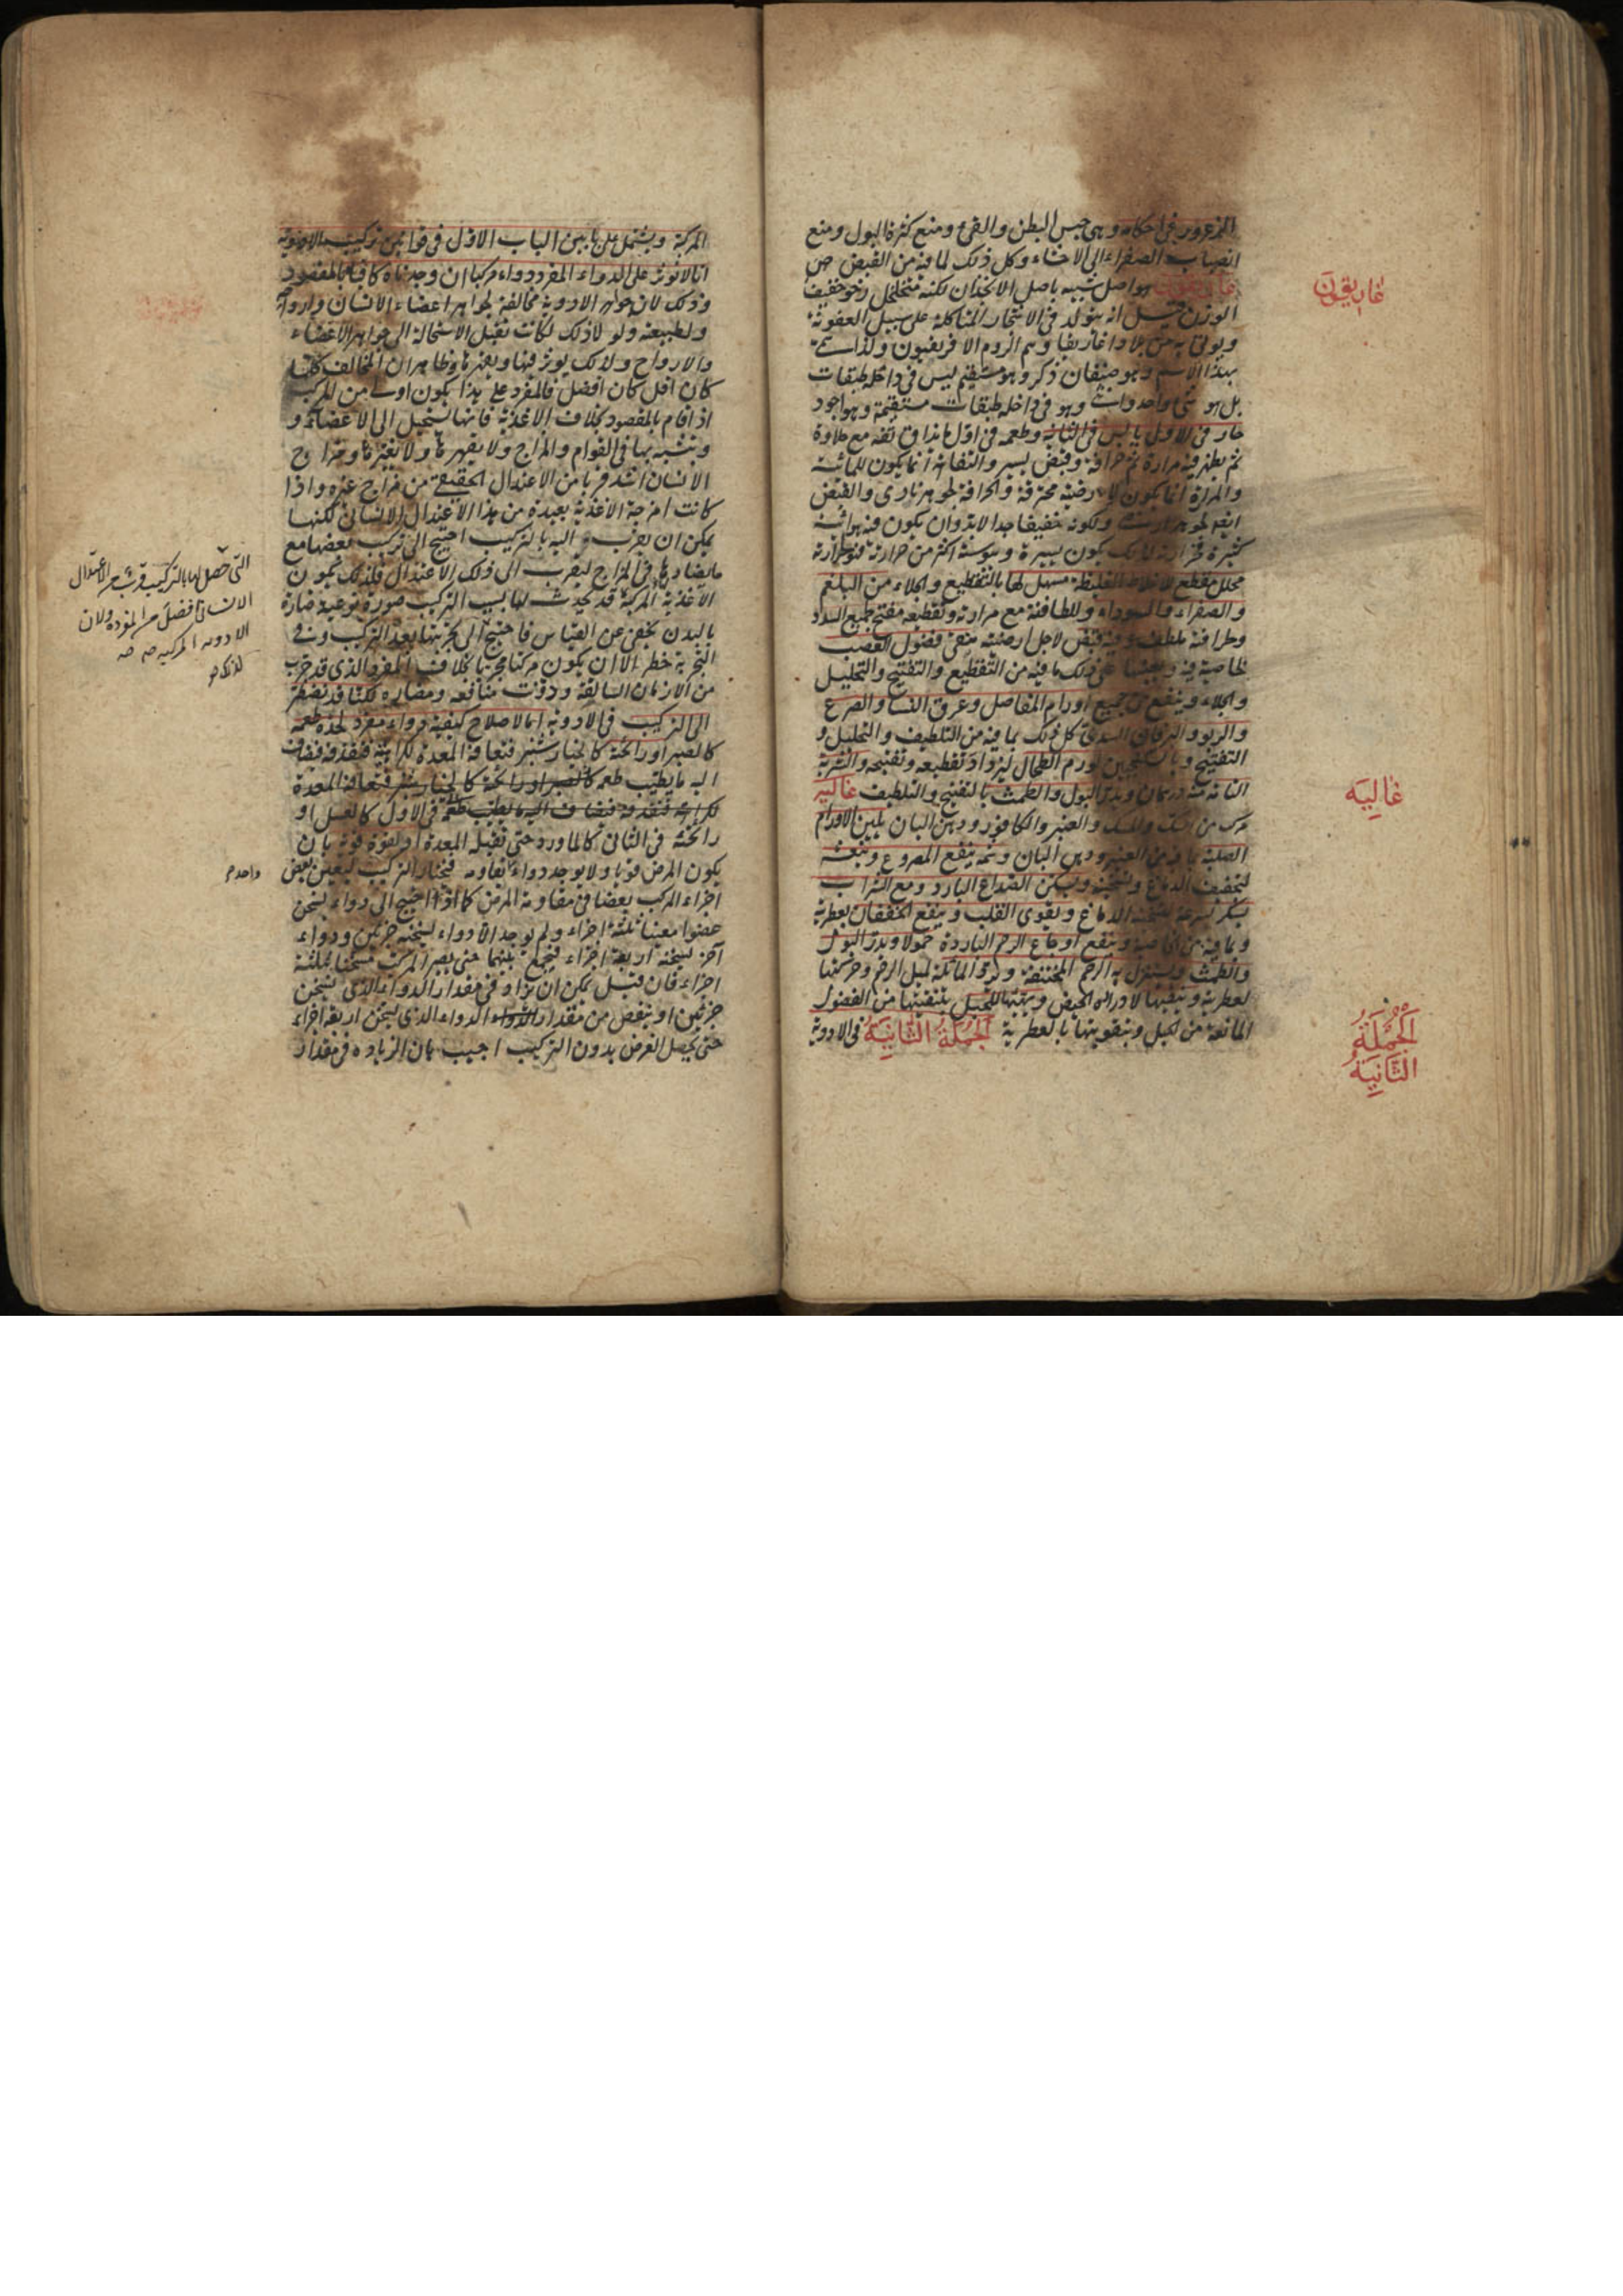 الزعرور فى احكامه وهى حبس البطن والقىء ومنع كثرة البول ومنع
انصباب الصفراء الى الاحشاء وكل ذلك لما فيه من القبض
هو اصل شبيه باصل الانجذان لكنه متخلخل رخو خفيف
غاريقون
الوزن قيل انه يتولد فى الاشجار المتأكلة على سبيل العفونة
ويؤتى به من بلاد وهم الروم الا ولذا سمى
بهذا الاسم وهو صنفان ذكر وهو مستقيم ليس فى داخله طبقات
بل هو شىء واحد وانثى وهو فى داخله طبقات مستقيمة وهو اجود
حار فى الاولى يابس فى الثانية وطعمه فى اول ما يذاق تفه مع حلاوة
ثم يظهر فيه مرارة ثم حرافة وقبض يسير والتفاهة انما يكون للمائية
والمرارة انما يكون لارضية محترقة والحرافة لجوهر نارى والقبض
ولكونه خفيفا جدا لا بد وان يكون فيه هوائية
كثيرة يكون يسيرة ويبوسته اكثر من حرارته
محلل مقطع للاخلاط الغليظة مسهل لها بالتقطيع والجلاء من البلغم
والصفراء والسوداء وللطافته مع مرارته وتقطيعه مفتح لجميع السدد
ملطف وفيه قبض لاجل ارضيته ينقى فضول العصب
لخاصية فيه على ذلك ما فيه من التقطيع والتفتيح والتحليل
والجلاء وينفع من جميع اورام المفاصل وعرق النسا والصرع
والربو واليرقان السددى كل ذلك بما فيه من التلطيف والتحليل و
التفتيح وبالسكنجبين لورم الطحال ليزداد تقطيعه وتفتيحه والشربة
التامة منه درهمان ويدر البول والطمث بالتفتيح والتلطيف غالية
غالِيَه
مركب من المسك والعنبر والكافور ودهن البان يلين الاورام
الصلبة بما فيه من العنبر ودهن البان وشمه ينفع المصروع
لتجفيف الدماغ وتسخينه ويسكن الصداع البارد ومع الشراب
يسكر بسرعة لتسخينه الدماغ ويقوى القلب وينفع الخفقان بعطريته
وبما فيه من الخاصية وينفع اوجاع الرحم الباردة حمولا ويدر البول
والطمث ويستنزل به الرحم المختنقة ويرد المائلة لميل الرحم وحركتها
لعطريته وينقيها لادراره الحيض ويهيئها للحبل بتنقيتها من الفضول
المانعة من الحبل وبتقويتها بالعطرية الجُملَةُ الثَّانِيَةُ فى الادوية
الجُملَةُ
الثَّانِيَةُ
المركبة ويشتمل على بابين الباب الاول فى قوانين تركيب الادوية
انا لا نؤثر على الدواء المفرد دواء مركبا ان وجدناه كافيا بالمقصود
وذلك لان جواهر الادوية مخالفة لجواهر اعضاء الانسان وارواحه
ولطبيعته ولولا ذلك لكانت تقبل الاستحالة الى جواهر الاعضاء
والارواح ولا يؤثر فيها ويغيرها وظاهر ان المخالف كلما
كان اقل كان افضل فالمفرد على هذا يكون اولى من المركب
اذا قام بالمقصود بخلاف الاغذية فانها تستحيل الى الاعضاء و
وتتشبه بها فى القوام والمزاج ولا يقهرها ولا تغيرها ومزاج
الانسان اشد قربا من الاعتدال الحقيقى من مزاج غيره واذا
كانت امزجة الاغذية بعيدة من هذا الاعتدال الانسانى لكنها
يمكن ان يقرب اليه بالتركيب احتيج الى تركيب بعضها مع
ما يضادها فى المزاج ليقرب الى ذلك الاعتدال فلذلك يكون
الاغذية المركبة قد يحدث لها بسبب التركيب صورة نوعية ضارة
التى حصل لها بالتركيب
الانسانى افضل من المفردة ولان
الادوية المركبة
بالبدن يخفى عن القياس فاحتيج الى تجربتها بعد التركيب وفى
التجربة خطر الا ان يكون مركبا مجربا بخلاف المفرد الذى قد جرب
من الازمان السالفة ودونت منافعه ومضاره لكنا قد نضطر
الى التركيب فى الادوية اما لاصلاح كيفية دواء مفرد
كالصبر او رائحته كالخيارشنبر فتعافه المعدة لكراهيته فتقذفه فيضاف
اليه ما يطيب طعمه كالصبر او رائحته كالخيارشنبر فتعافه المعدة
لكراهته فتقذفه فيضاف اليه ما يطيب طعمه فى الاول كالعسل او
رائحته فى الثانى كالماورد حتى تقبله المعدة او لقوة قوته بان
يكون المرض قويا ولا يوجد دواء يقاومه فنختار التركيب ليعين بعض
واحد
اجزاء المركب بعضا فى مقاومة المرض كما اذا احتيج الى دواء يسخن
عضوا معينا ثلثة اجزاء ولم يوجد الا دواء يسخنه جزئين ودواء
آخر يسخنه اربعة اجزاء فيجمع بينهما حتى يصير المركب مسخنا بثلثة
اجزاء فان قيل يمكن ان يزاد فى مقدار الدواء الذى يسخن
جزئين او ينقص من مقدار الدواء الذى يسخن اربعة اجزاء
حتى يحصل الغرض بدون التركيب اجيب بان الزيادة فى مقدار